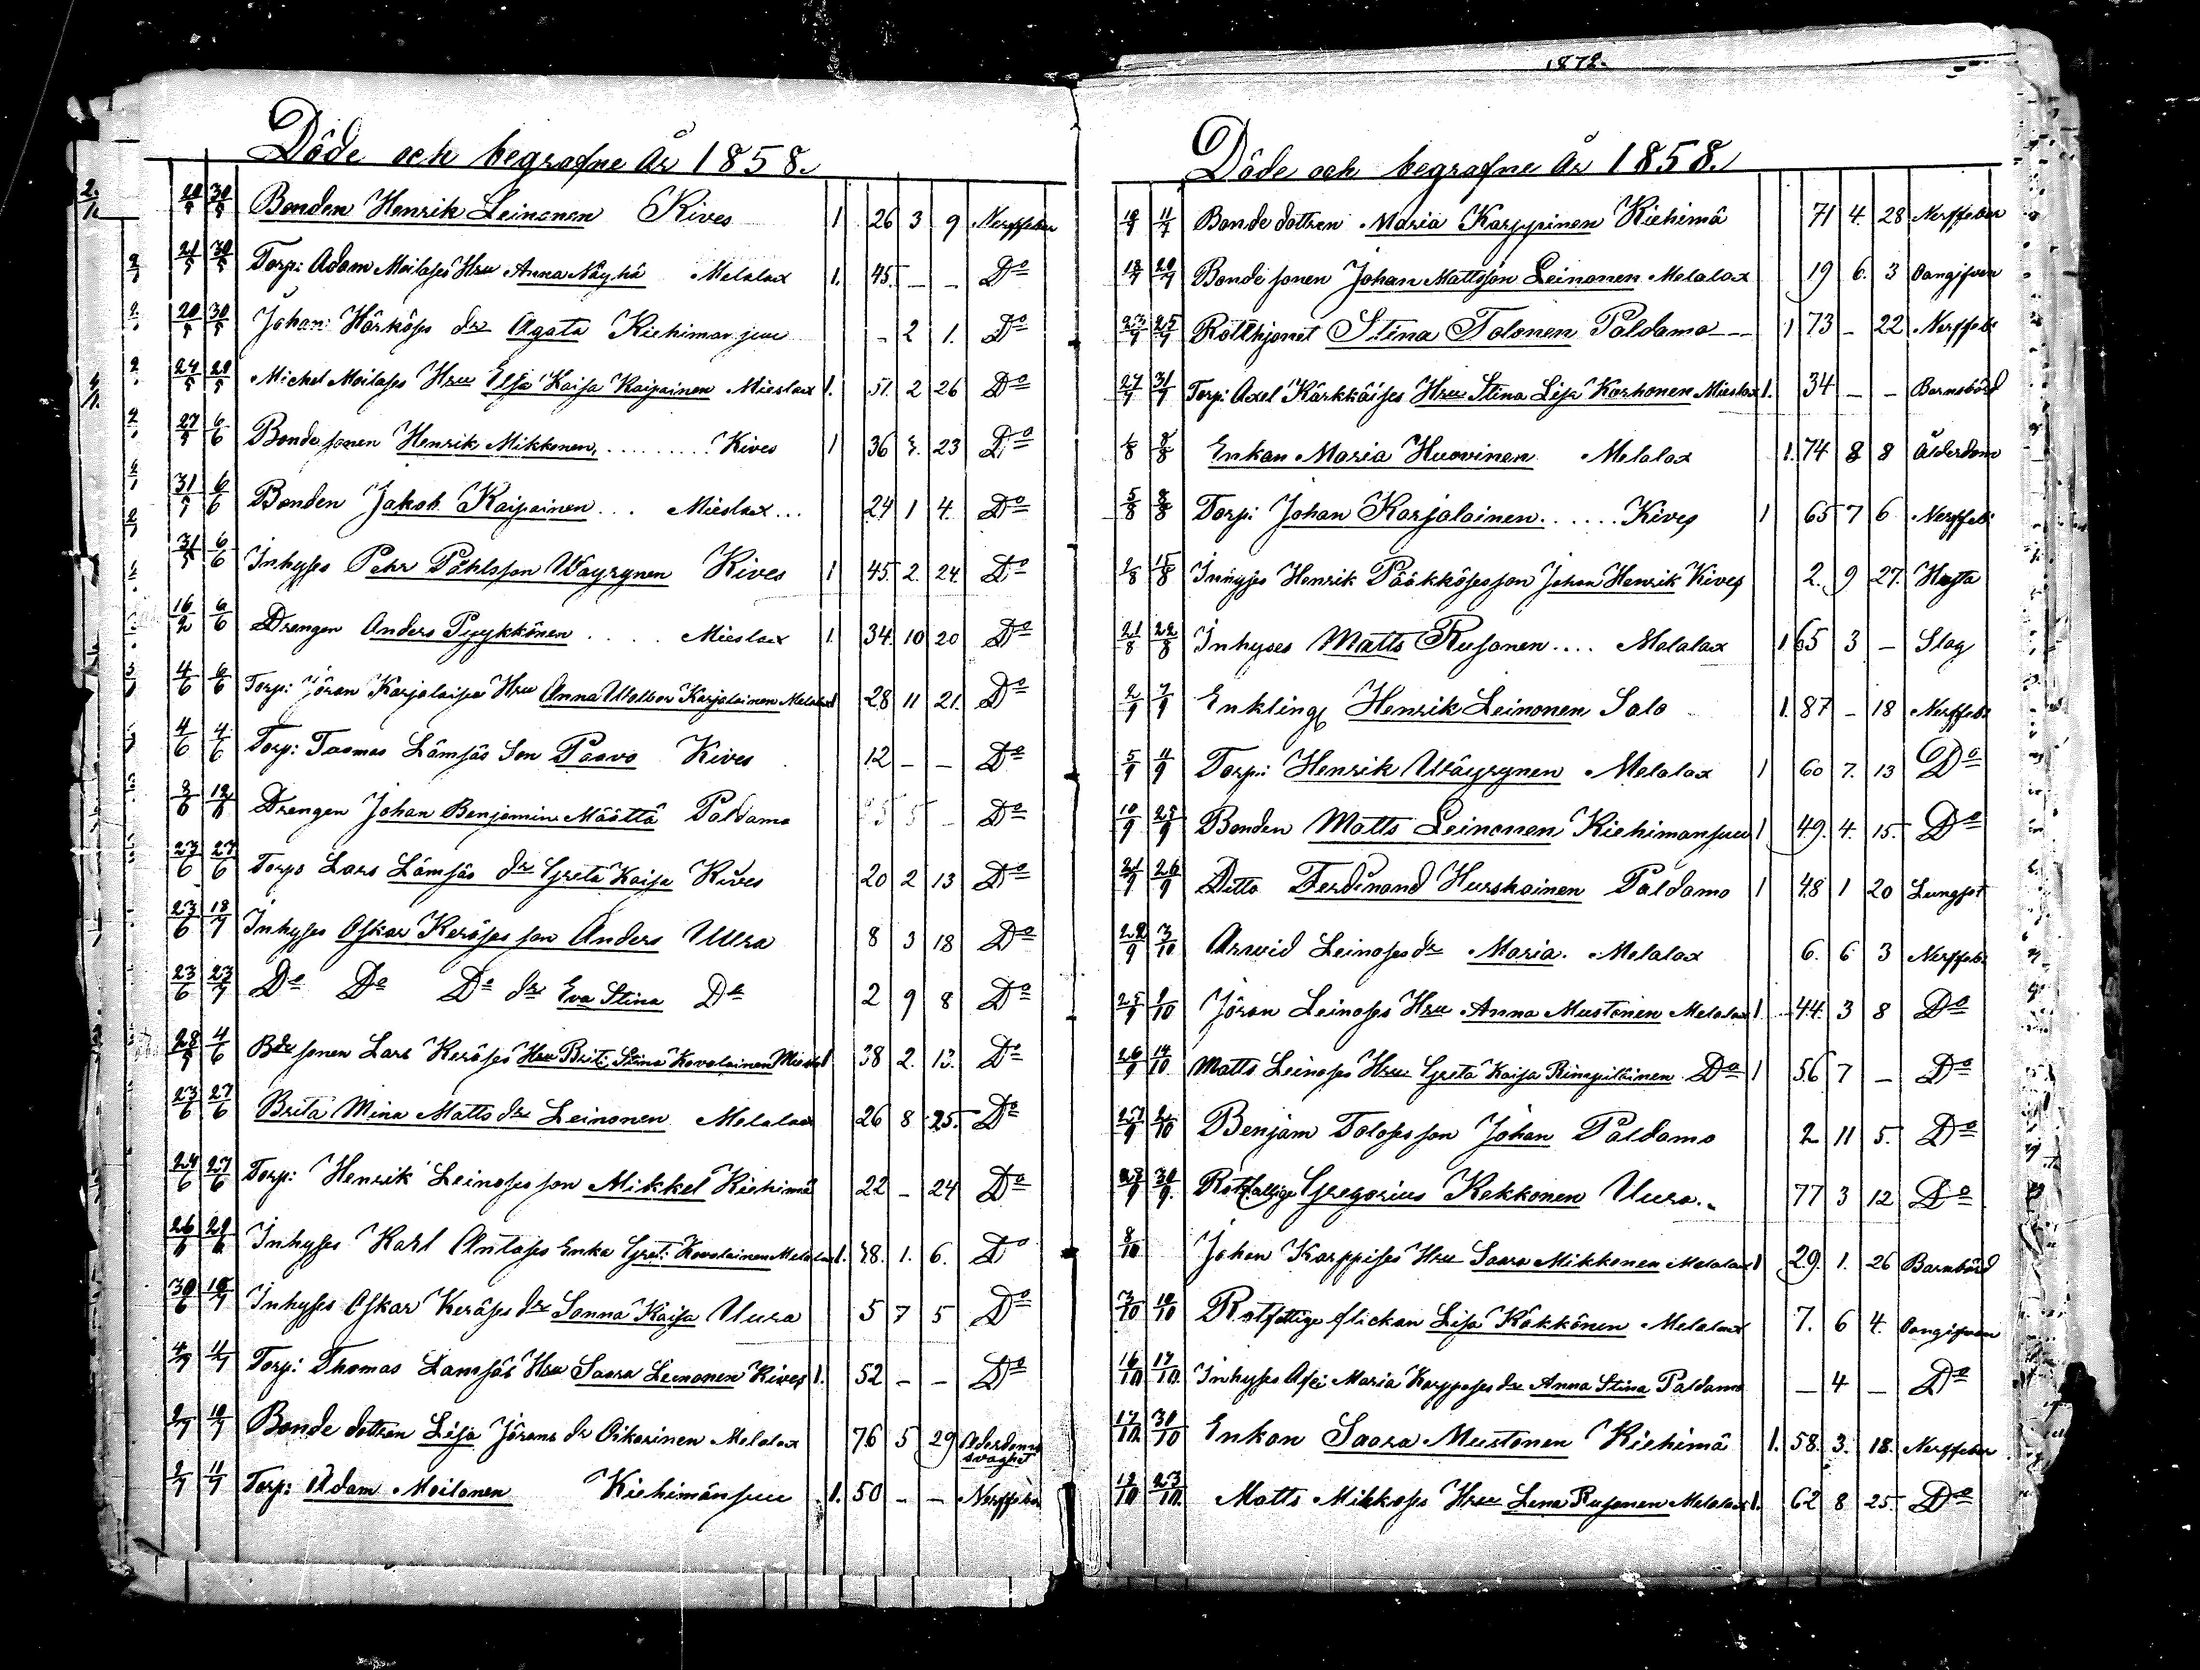 1878.
Döde och begrafne År 1858.
30/5 Bonden Henrik Leinonen Kives 1 26 3 9 Nerffeber
21/5 30/5 Torp: Adam Moilases Hru Anna Näyhä Melalax 1. 45. – – Do
20/5 30/5 Johan Härköses dr Agata Kiehimansuu – 2 1. Do
24/5 Michel Moilases Hru Elsa Kaisa Kaipainen Mieslax 1. 51. 2 26 Do
27/5 6/6 Bonde sonen Henrik Mikkonen, . . . . . . . . . Kives 1 36 23 Do
31/5 6/6 Bonden Jakob Kaipainen . . . Mieslax . . . 24 1 4. Do
31/5 6/6 Inhyses Pehr Påhlsson Wäyrynen Kives 1 45. 2. 24. Do
6/6 Drengen Anders Pyykkönen . . . . . Mieslax 1. 34. 10 20 Do
4/6 6/6 Torp: Jöran Karjalaises Hru Anna Walbor Karjalainen Melalax 28 11 21. Do
4/6 4/6 Torp: Tuomas Lämsäs Son Paavo Kives 12 – – Do
Drengen Johan Benjamin Määttä Paldamo – Do
23/6 27/6 Torps Lars Lämsäs dr Greta Kaisa Kives 20 2 13 Do
23/6 18/7 Inhyses Oskar Keräses son Anders Uura 8 3 18 Do
23/6 23/7 Do Do Do dr Eva Stina Do 2 9 8 Do
28/5 4/6 Bde sonen Lars Keräses Hru Brit: Stina Kovalainen 38 2. 13. Do
23/6 27/6 Brita Mina Matts dr Leinonen Melalax 26 8 25. Do
27/6 Torp: Henrik Leinoses son Mikkel Kiehimä 22 – 24 Do
26/6 Inhyses Karl Antases Enka Gret: Kovalainen Melalax 1. 1. 6. Do
30/6 Inhyses Oskar Keräses dr Sanna Kaisa Uura 5 7 5 Do
4/7 11/7 Torp: Thomas Lamsäs Hru Saara Leinonen Kives 1. 52 – – Do
Bonde dottren Lisa Jörans dr Oikarinen Melalax 76 5 29 Åderdoms svaghet
11/7 Torp: Adam Moilanen Kiehimänsuu 1. 50 – – Nerffeber
Döde och begrafne År 1858.
11/7 Bonde dottren Maria Karppinen Kiehimä 71 4. 28 Nerffeber
18/7 Bonde sonen Johan Mattsson Leinonen Melalax 19 6. 3 Oangifven
23/7 25/7 Rothhjonet Stina Tolonen Paldamo 1 73 – 22 Nerffeb:
27/7 31/7 Torp: Axel Kärkkäises Hru Stina Lisa Karhonen Mieslax 1. 34 – – Barnsbörd
8/8 Enkan Maria Huovinen Melalax 1. 74 8 8 Ålderdom
5/8 8/8 Torp: Johan Karjalainen . . . . . . Kives 1 65 7 6. Nerffeb:
15/8 Inhyses Henrik Pääkköses son Johan Henrik Kives 2. 9 27. Hosta
21/8 22/8 Inhyses Matts Rusanen . . . . Melalax 1 65 3 – Slag
Enkling Henrik Leinonen Salo 1. 87 – 18 Nerffeb:
5/9 Torp: Henrik Wäyrynen Melalax 1 60 7. 13 Do
19/9 25/9 Bonden Matts Leinonen Kiehimansuu 1 49. 4. 15. Do
21/9 26/9 Ditto Ferdinand Hurskainen Paldamo 1 48 1 20 Lungsot
3/10 Arwid Leinoses dr Maria. Melalax 6. 6 3 Nerffeb:
25/9 Jöran Leinoses Hru Anna Mustonen Melalax 1. 44. 3 8 Do
26/9 14/10 Matts Leinoses Hru Greta Kaisa Rimpiläinen Do 1 56 7 – Do
27/9 Benjam Toloses son Johan Paldamo 2 11 5. Do
Rotfattige Gregorius Kekkonen Uura. 77 3 12 Do
8/10 Johan Karppises Hru Saara Mikkonen Melalax 1 29. 1. 26 Barnbörd
3/10 10/10 Rotfattige flickan Lisa Kökkönen Melalax 7. 6 4. Oangifven
16/10 17/10 Inhyses Maria Karppases dr Anna Stina Paldamo – 4 – Do
17/10 Enkan Saara Mustonen Kiehimä 1. 58. 3. 18. Nerffeber
23/10 Matts Mikkoses Hru Lena Rusanen Melalax 1. 62 8 25. Do